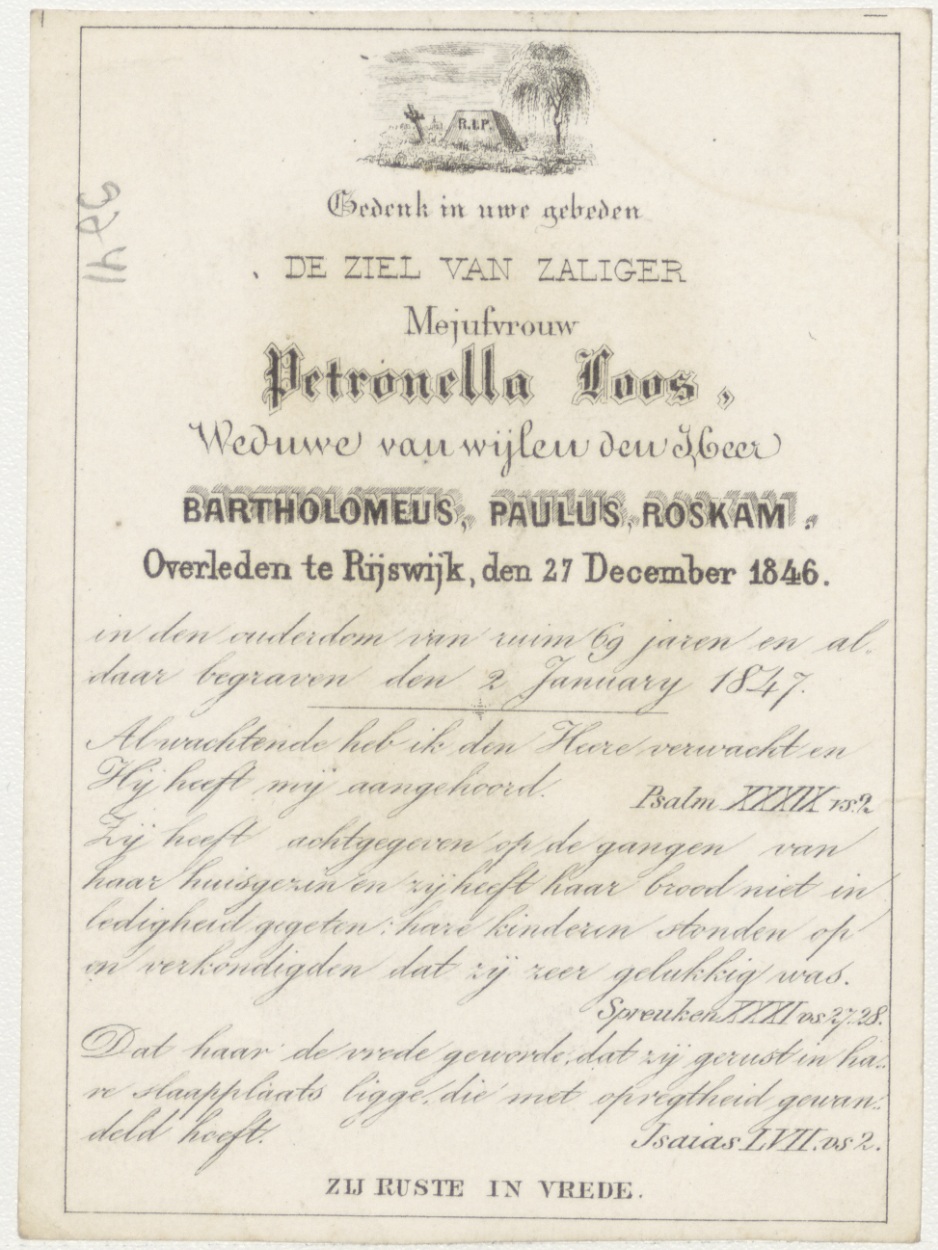 R.I.P.
Gedenk in uwe gebeden
DE ZIEL VAN ZALIGER
Mejufvrouw
Petronella Loos,
Weduwe van wijlen den Heer
BARTHOLOMEUS, PAULUS, ROSKAM.
Overleden te Rijswijk, den 27 December 1846.
in den ouderdom van ruim 69 jaren en al-
daar begraven den 2 January 1847.
Alwachtende heb ik den Heere verwacht en
Hij heeft mij aangehoord.
Psalm XXXIX vs 2
Zij heeft achtgegeven op de gangen van
haar huisgezin en zij heeft haar brood niet in
ledigheid gegeten; hare kinderen stonden op
en verkondigden dat zij zeer gelukkig was.
Spreuken XXXI vs 27.28.
Dat haar de vrede geworde, dat zij gerust in ha-
re slaapplaats ligge, die met opregtheid gewan-
deld heeft.
Isaias LVII. vs 2.
ZIJ RUSTE IN VREDE.